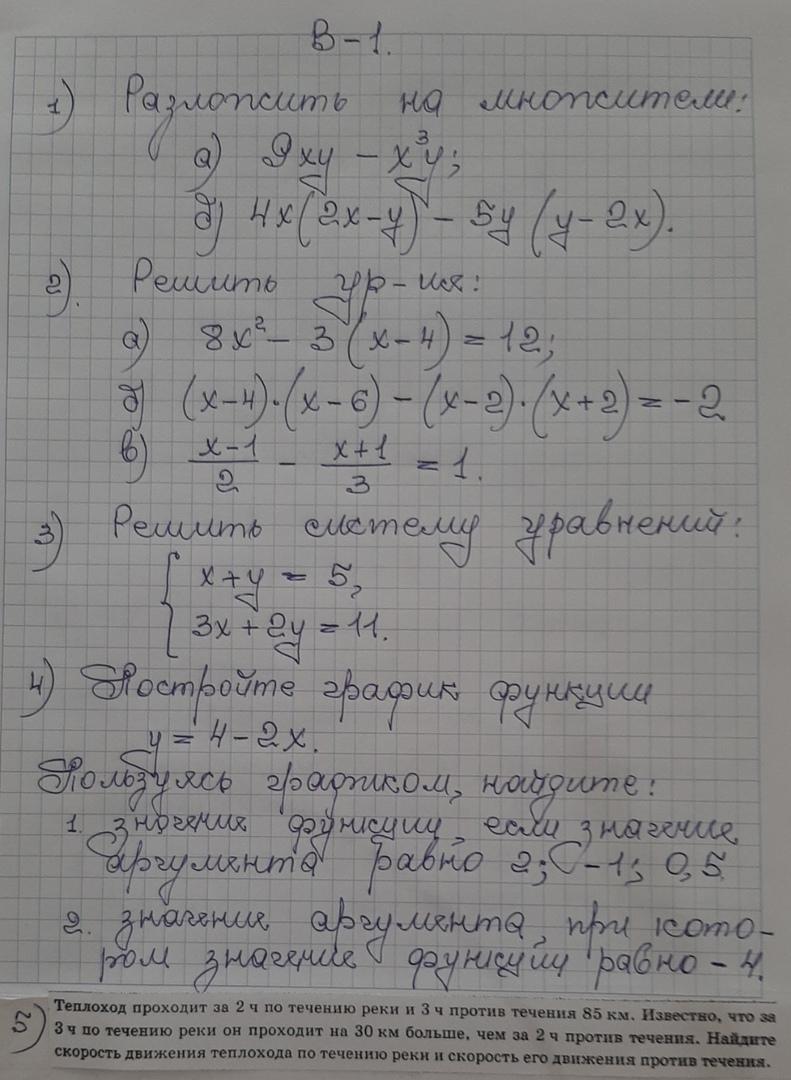 В-1.
1) Разложить на множители:
а) 9xy - x³y;
б) 4x(2x-y) - 5y(y-2x).
2). Решить ур-ия:
а) 8x² - 3(x-4) = 12;
б) (x-4)·(x-6) - (x-2)·(x+2) = -2
в) (x-1)/2 - (x+1)/3 = 1.
3) Решить систему уравнений:
{ x+y = 5,
3x+2y = 11.
4) Постройте график функции
y = 4-2x.
Пользуясь графиком, найдите:
1. значение функции, если значение
аргумента равно 2; -1; 0,5
2. значение аргумента, при кото-
ром значение функции равно -4.
5) Теплоход проходит за 2 ч по течению реки и 3 ч против течения 85 км. Известно, что за
3 ч по течению реки он проходит на 30 км больше, чем за 2 ч против течения. Найдите
скорость движения теплохода по течению реки и скорость его движения против течения.